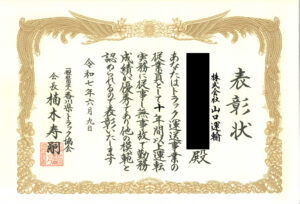 表彰状
株式会社山口運輸
殿
あなたはトラック運送事業の
従業員として十年間以上運転
実務に従事し無事故で勤務
成績が優秀であり他の模範と
認められるので表彰いたします
令和七年六月九日
一般社団法人香川県トラック協会
会長 楠木寿嗣